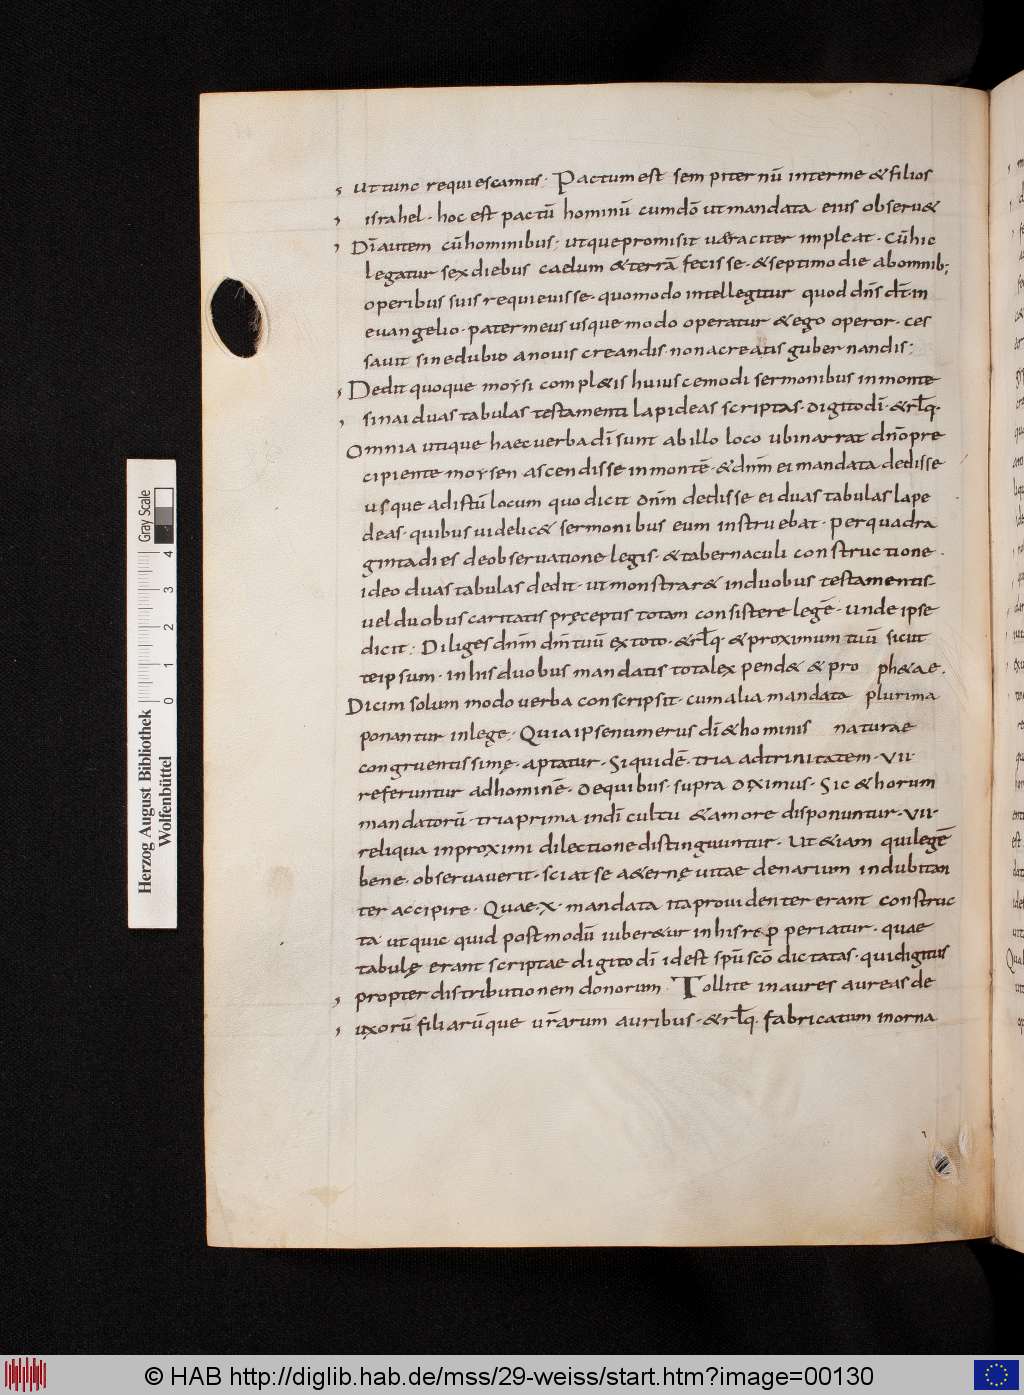 ut tunc requiescamus· Pactum est sempiternū inter me & filios
israhel· hoc est pactū hominū cum dō ut mandata eius observ&
Dī autem cū hominibus; utque promisit veraciter impleat· Cū hic
legatur sex diebus caelum & terrā fecisse· & septimo die ab omnib;
operibus suis requievisse· quomodo intellegitur quod dn̄s dc̄t in
evangelio· pater meus usque modo operatur & ego operor· ces
savit sine dubio a novis creandis· non a creatis gubernandis;
Dedit quoque moysi compl&is huiuscemodi sermonibus in monte
sinai duas tabulas testamenti lapideas scriptas· digito dī· & rl̄q·
Omnia utique haec verba dī sunt ab illo loco ubi narrat dn̄o pre
cipiente moysen ascendisse in montē· & dn̄m ei mandata dedisse
usque ad istū locum quo dicit dn̄m dedisse ei duas tabulas lapi
deas· quibus videlic& sermonibus eum instruebat· per quadra
ginta dies de observatione legis· & tabernaculi constructione·
ideo duas tabulas dedit· ut monstrar& in duobus testamentis
vel duobus caritatis pręceptis totam consistere legē· unde ipse
dicit: Diliges dn̄m dm̄ tuū ex toto· & rl̄q· & proximum tuū sicut
te ipsum· in his duobus mandatis tota lex pend& & pro ph&ae·
Dicim solum modo verba conscripsit· cum alia mandata plurima
ponantur in lege· Quia ipse numerus dī & hominis naturae
congruentissimę· aptatur· Siquidē· tria ad trinitatem· VII·
referuntur ad hominē· de quibus· supra diximus· Sic & horum
mandatorū· tria prima in dī cultu & amore disponuntur· VII·
reliqua in proximi dilectione distinguuntur· Ut &iam qui legē
bene· observaverit· sciat se a&ernę vitae denarium indubitan
ter accipire· Quae· X· mandata ita providenter erant construc
ta ut quic quid post modū iuber&ur in his rep periatur· quae
tabulę erant scriptae digito dī id est sp̄u sc̄o dictatas· qui digitus
propter distributionem donorum· Tollite inaures aureas de
uxorū filiarūque vr̄arum auribus· & rl̄q· fabricatum in orna
Herzog August Bibliothek
Wolfenbüttel
0 1 2 3 4
Gray Scale
© HAB http://diglib.hab.de/mss/29-weiss/start.htm?image=00130